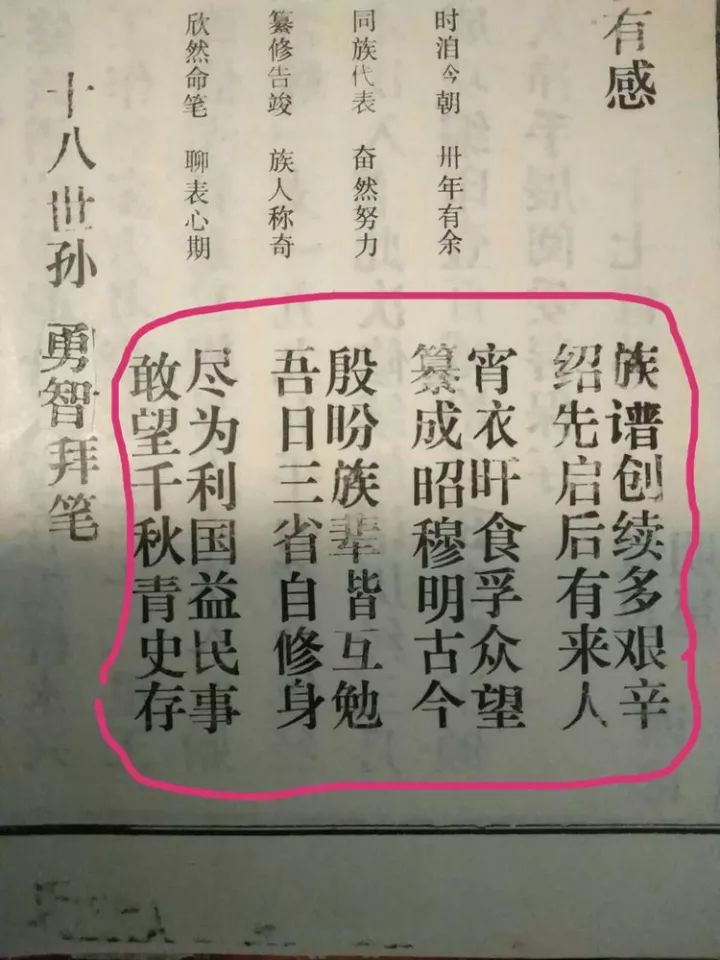 有感
时洎今朝　卅年有余
同族代表　奋然努力
纂修告竣　族人称奇
欣然命笔　聊表心期
族谱创续多艰辛
绍先启后有来人
宵衣旰食孚众望
纂成昭穆明古今
殷盼族辈皆互勉
吾日三省自修身
尽为利国益民事
敢望千秋青史存
十八世孙　勇智拜笔